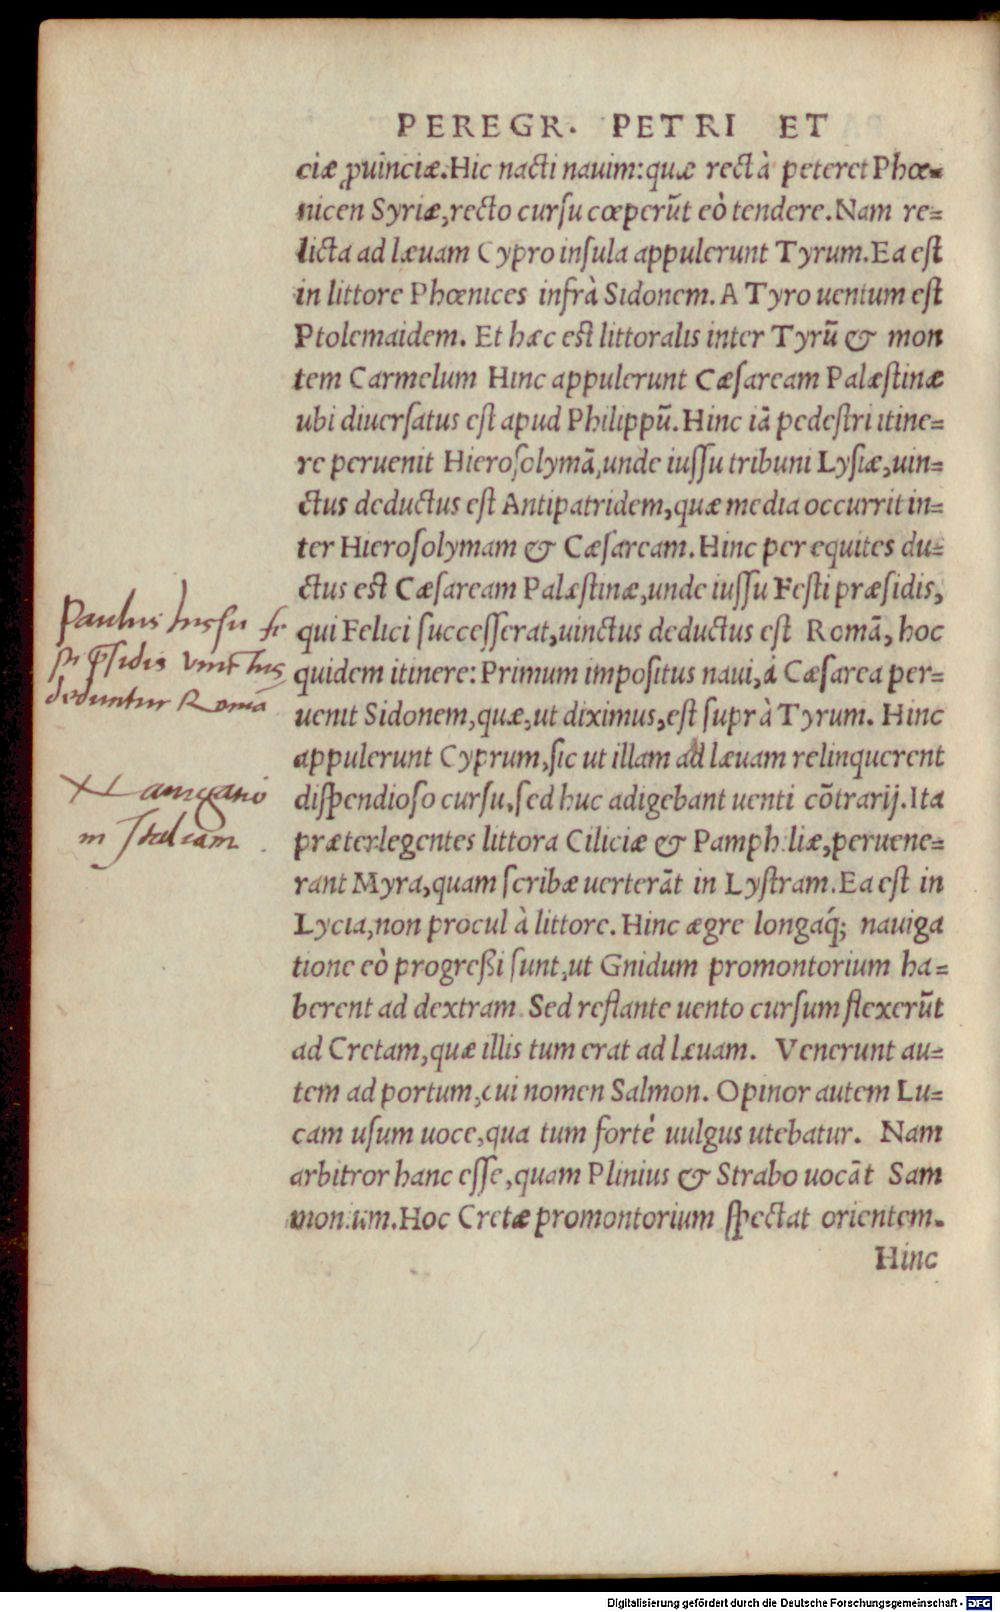 PEREGR. PETRI ET
ciæ ꝓuinciæ. Hic nacti nauim: quæ rectà peteret Phœ=
nicen Syriæ, recto cursu cœperũt eò tendere. Nam re=
licta ad læuam Cypro insula appulerunt Tyrum. Ea est
in littore Phœnices infrà Sidonem. A Tyro uentum est
Ptolemaidem. Et hæc est littoralis inter Tyrũ & mon
tem Carmelum Hinc appulerunt Cæsaream Palæstinæ
ubi diuersatus est apud Philippũ. Hinc iã pedestri itine=
re peruenit Hierosolymã, unde iussu tribuni Lysiæ, uin=
ctus deductus est Antipatridem, quæ media occurrit in=
ter Hierosolymam & Cæsaream. Hinc per equites du=
ctus est Cæsaream Palæstinæ, unde iussu Festi præsidis,
qui Felici successerat, uinctus deductus est Romã, hoc
quidem itinere: Primum impositus naui, à Cæsarea per=
uenit Sidonem, quæ, ut diximus, est suprà Tyrum. Hinc
appulerunt Cyprum, sic ut illam ad læuam relinquerent
dispendioso cursu, sed huc adigebant uenti cõtrarij. Ita
præterlegentes littora Ciliciæ & Pamph liæ, peruene=
rant Myra, quam scribæ uerterãt in Lystram. Ea est in
Lycia, non procul à littore. Hinc ægre longaq́; nauiga
tione eò progreßi sunt, ut Gnidum promontorium ha=
berent ad dextram. Sed reflante uento cursum flexerũt
ad Cretam, quæ illis tum erat ad læuam. Venerunt au=
tem ad portum, cui nomen Salmon. Opinor autem Lu=
cam usum uoce, qua tum fortè uulgus utebatur. Nam
arbitror hanc esse, quam Plinius & Strabo uocãt Sam
monium. Hoc Cretæ promontorium spectat orientem.
Hinc
Paulus Iussu fe
sti p̃sidis vinctus
deduntur Romã
in Italiam
Digitalisierung gefördert durch die Deutsche Forschungsgemeinschaft - DFG